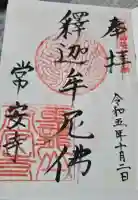 奉拝
令和五年十月二日
釋迦牟尼佛
常安寺